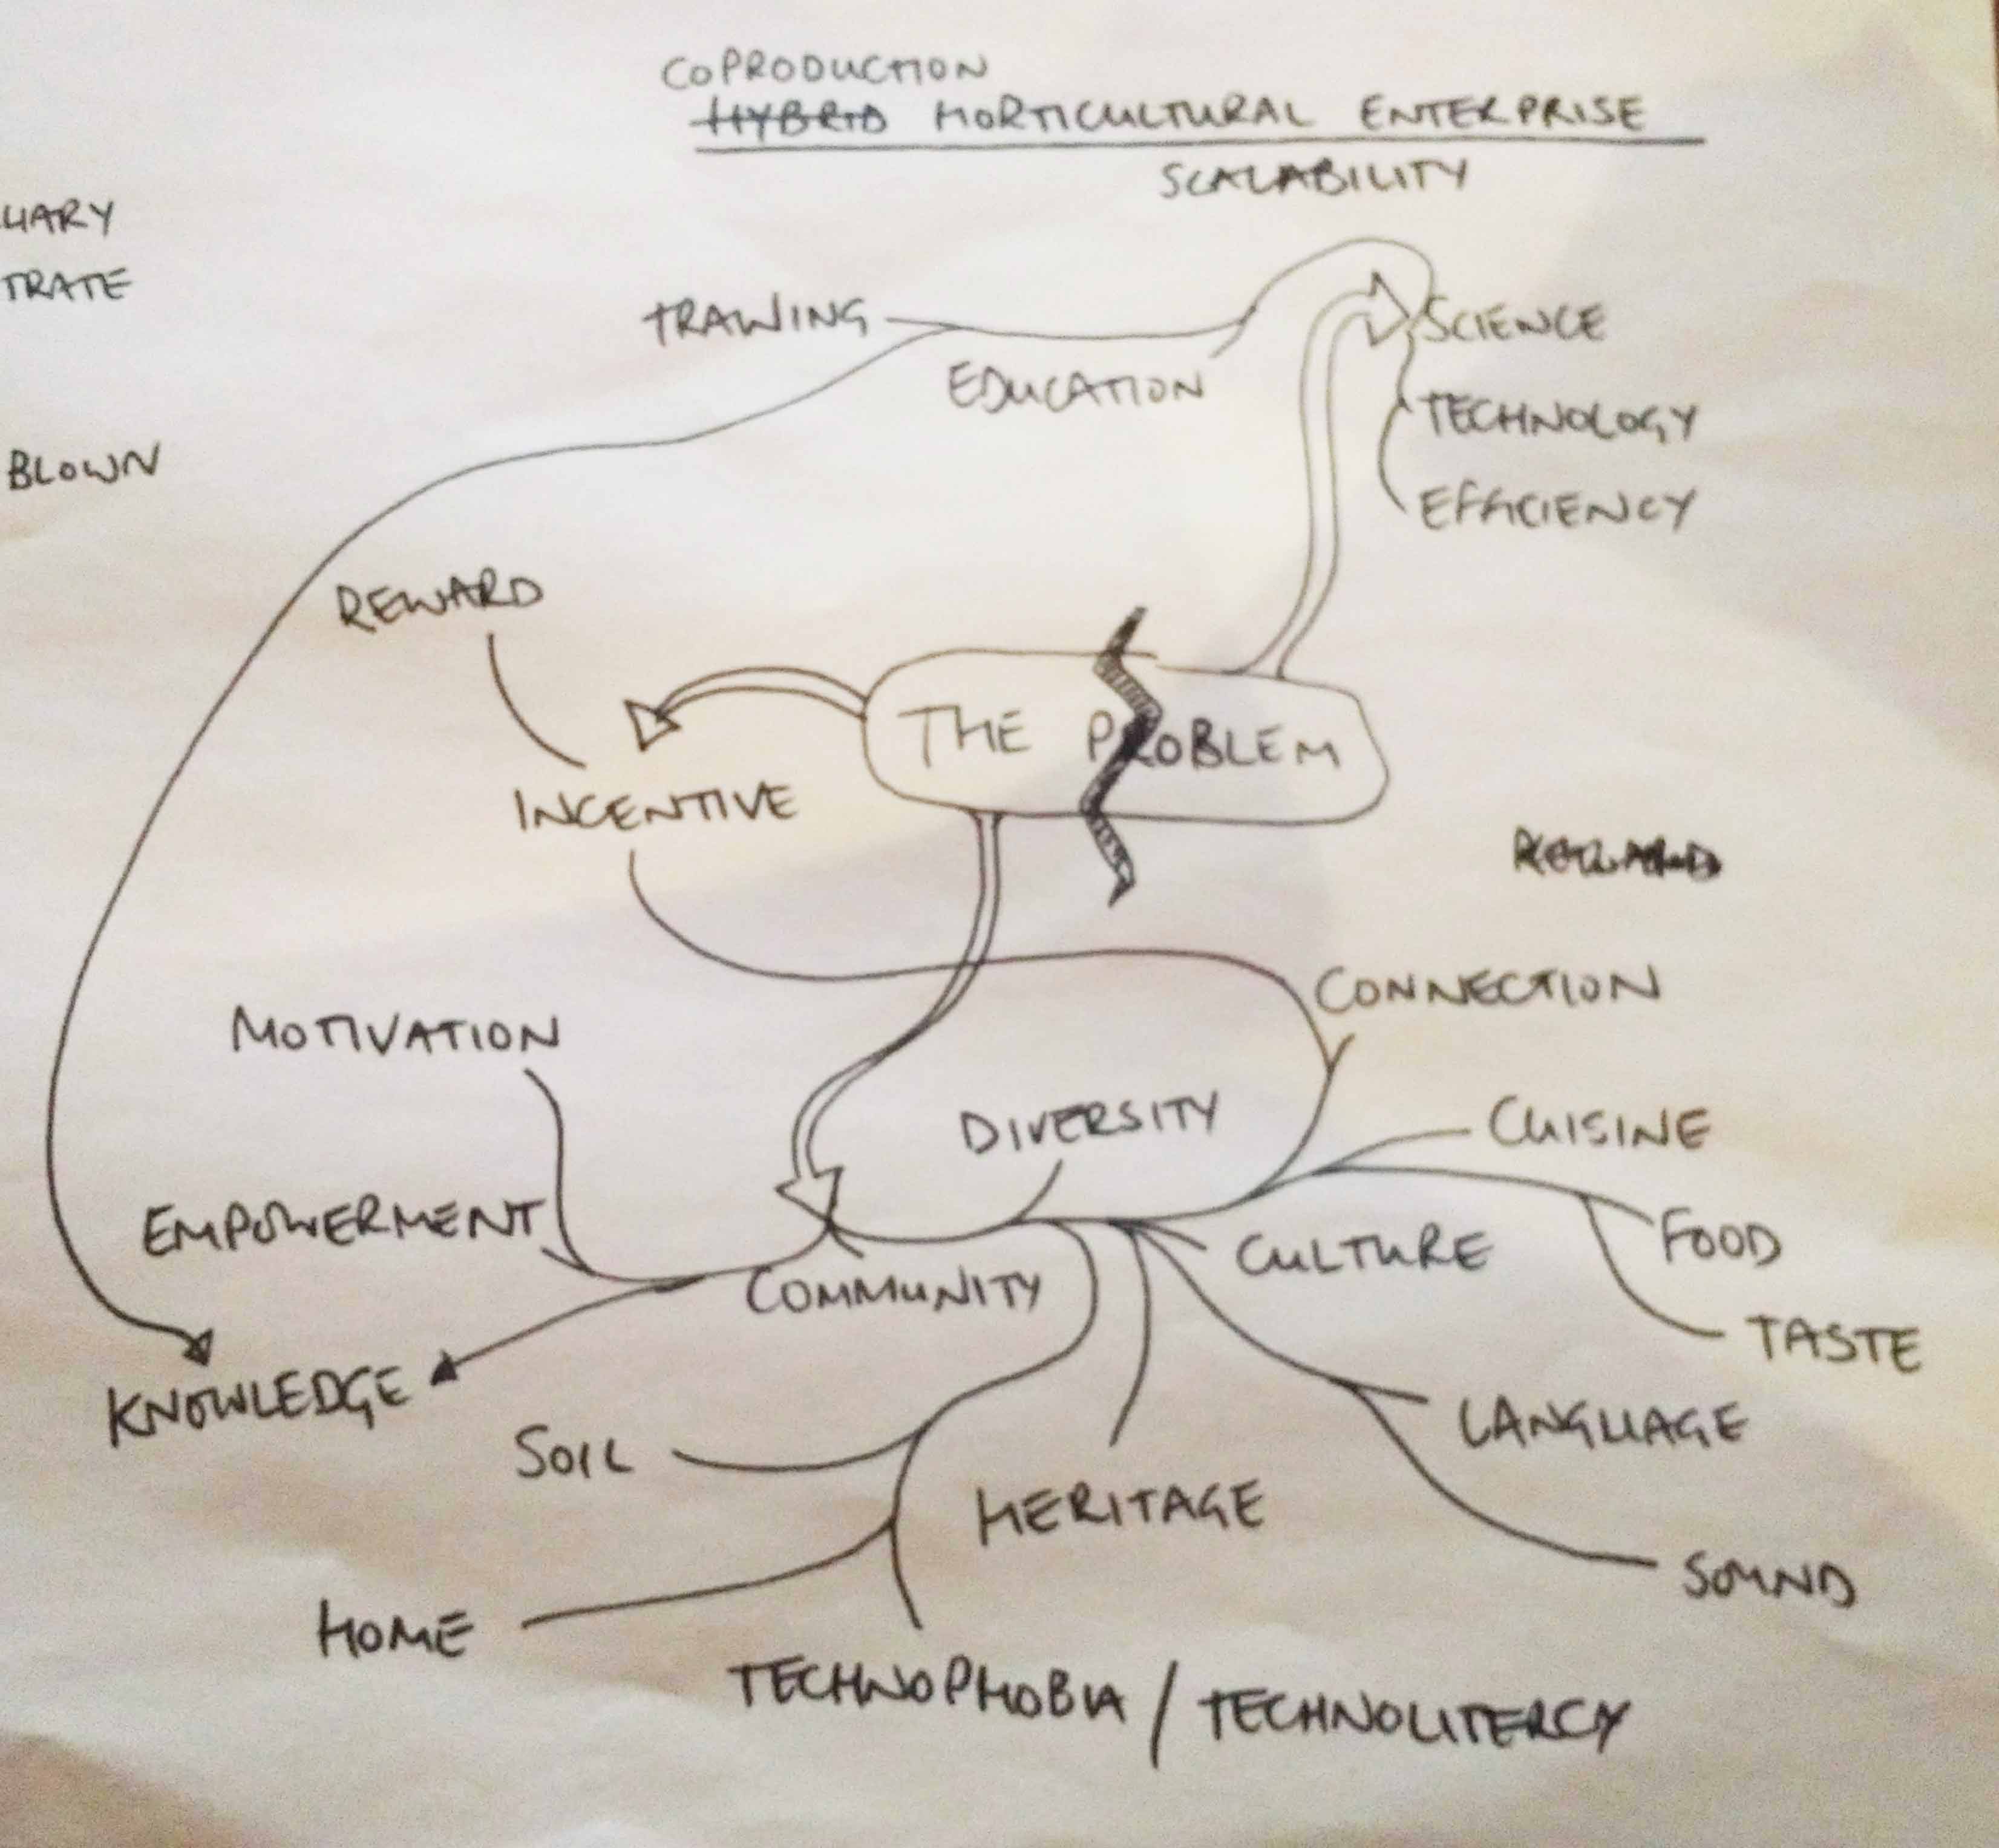 COPRODUCTION
HYBRID HORTICULTURAL ENTERPRISE
SCALABILITY
TRAINING
SCIENCE
EDUCATION
TECHNOLOGY
BLOWN
EFFICIENCY
REWARD
THE PROBLEM
INCENTIVE
CONNECTION
MOTIVATION
DIVERSITY
CUISINE
EMPOWERMENT
FOOD
CULTURE
COMMUNITY
TASTE
KNOWLEDGE
LANGUAGE
SOIL
HERITAGE
SOUND
HOME
TECHNOPHOBIA / TECHNOLITERCY